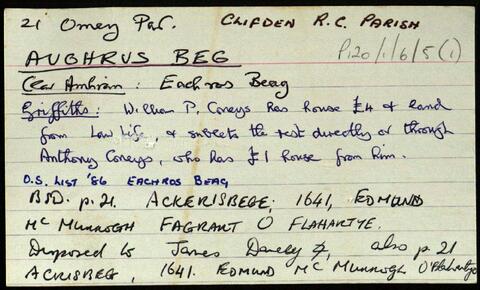 21 Omey Par. CLIFDEN R.C. PARISH
P120/1/6/5(1)
AUGHRUS BEG
Clár Amhráin: Eachros Beag
Griffiths: William P. Coneys has house £4 & land
from Law Life, & sublets the rest directly or through
Anthony Coneys, who has £1 house from him.
O.S. LIST '86 EACHROS BEAG
BSD. p. 21. ACKERISBEGE; 1641, EDMUND
Mc MURROGH FAGRANT O FLAHARTYE.
Disposed to James Darcy , also p. 21
ACRISBEG, 1641. EDMUND McMURROGH O'Flahertye